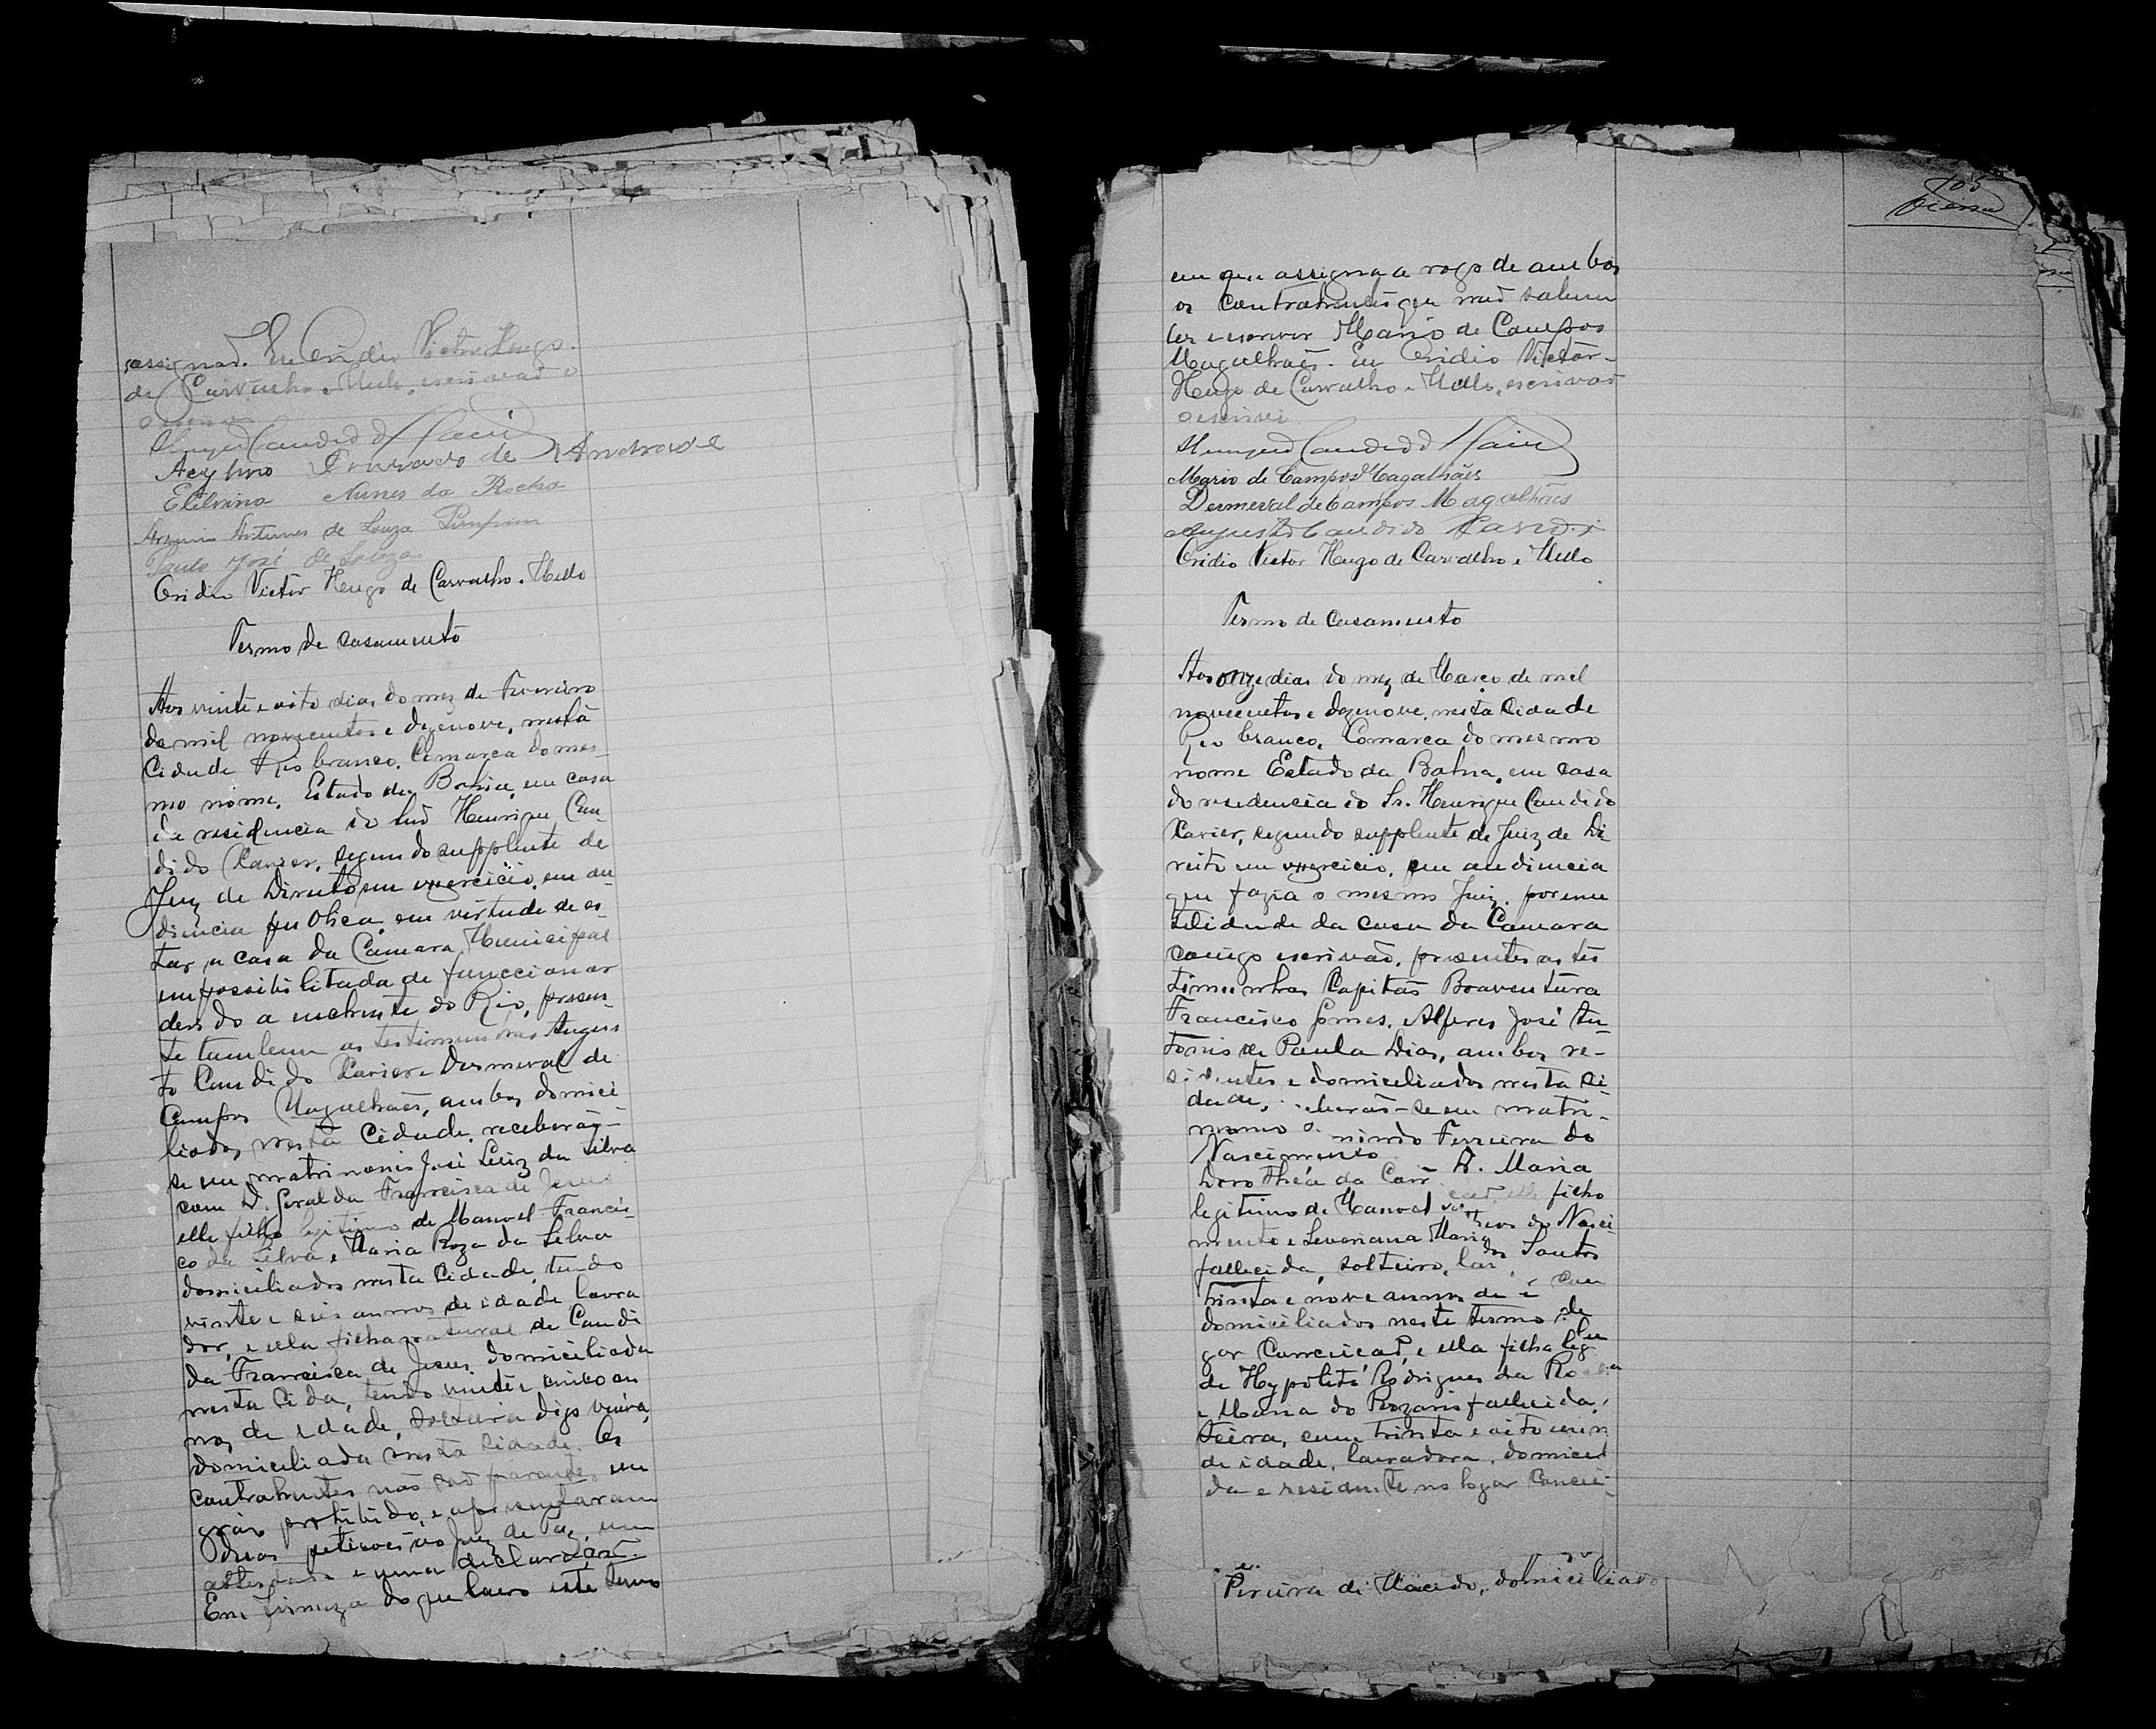 assignad. Eu Oridio Victor Hugo
de Carvalho e Mello, escrivão o
Henrique Candido Xavier
Acylino Dourado de Andrade
Etelvina Nunes da Rocha
Arsenio Antunes de Souza
Paulo José de Souza
Oridio Victor Hugo de Carvalho e Mello
Termo de casamento
Aos vinte e oito dias do mez de Fevereiro
de mil novecentos e dezenove, nesta
Cidade Rio branco, Comarca do mes-
mo nome, Estado da Bahia, em casa
da residencia do Henrique Can-
dido Xavier, segundo supplente de
Juiz de Direito em exercicio, em au-
diencia publica, em virtude de es-
tar a casa da Camara Municipal
impossibilitada de funccionar
devido a enchente do Rio, presen-
te tambem as testimunhas Augus-
to Candido Xavier e Dermeval de
Campos Magalhães, ambos domici
liados nesta Cidade, receberão-
se em matrimonio José Luiz da Silva
com D. Geralda Francisca de Jesus
elle filho legitimo de Manoel Francis-
co da Silva e Maria Roza da Silva
domiciliados nesta Cidade, tendo
vinte e seis annos de idade lavra
dor, e ella filha natural de Candi
da Francisca de Jesus, domiciliada
nesta Cida, tendo vinte e cinco an
nos de idade, solteira digo viuva,
domiciliada nesta Cidade. Os
contrahentes não são parentes em
gráo prohibido, e apresentaram
duas petições ao Juiz de Paz, um
attestado e uma declaração.
Em firmeza do que lavro este termo
105
em que assigna a rogo de ambos
os contrahentes que não sabem
ler e escrever Mario de Campos
Magalhães. Eu Oridio Victor
Hugo de Carvalho e Mello, escrivão
o escrevi
Henrique Candido Xavier
Mario de Campos Magalhães
Dermeval de Campos Magalhães
Augusto Candido Xavier
Oridio Victor Hugo de Carvalho e Mello
Termo de Casamento
Aos onze dias do mez de Março de mil
novecentos e dezenove, nesta Cidade
Rio branco, Comarca do mesmo
nome Estado da Bahia, em casa
do residencia do Sr. Henrique Candido
Xavier, segundo supplente de Juiz de Di
reito em exercicio, em audiencia
que fazia o mesmo Juiz, por inu
tilidade da casa da Camara
comigo escrivão, presentes as tes
timunhas Capitão Boaventura
Francisco Gomes, Alferes José An
tonio de Paula Dias, ambos re-
sidentes e domiciliados nesta Ci
dade, se em matri-
monio Ferreira do
Nascimento D. Maria
Dorothéa da elle filho
legitimo de Manoel do Nasci
mento e Severiana Maria dos Santos
fallecida, solteiro, com
trinta e nove annos de
domiciliados neste termo
gar e ella filha leg
de Hypolito Rodrigues da Rocha
e Maria do Rozario fallecida,
teira, com trinta e oito
de idade, lavradora,
da e residente no logar
Pereira de Macedo, domiciliado